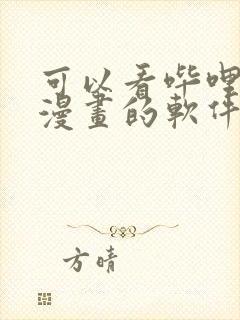 可以看哔哩
漫畫的軟件
方晴